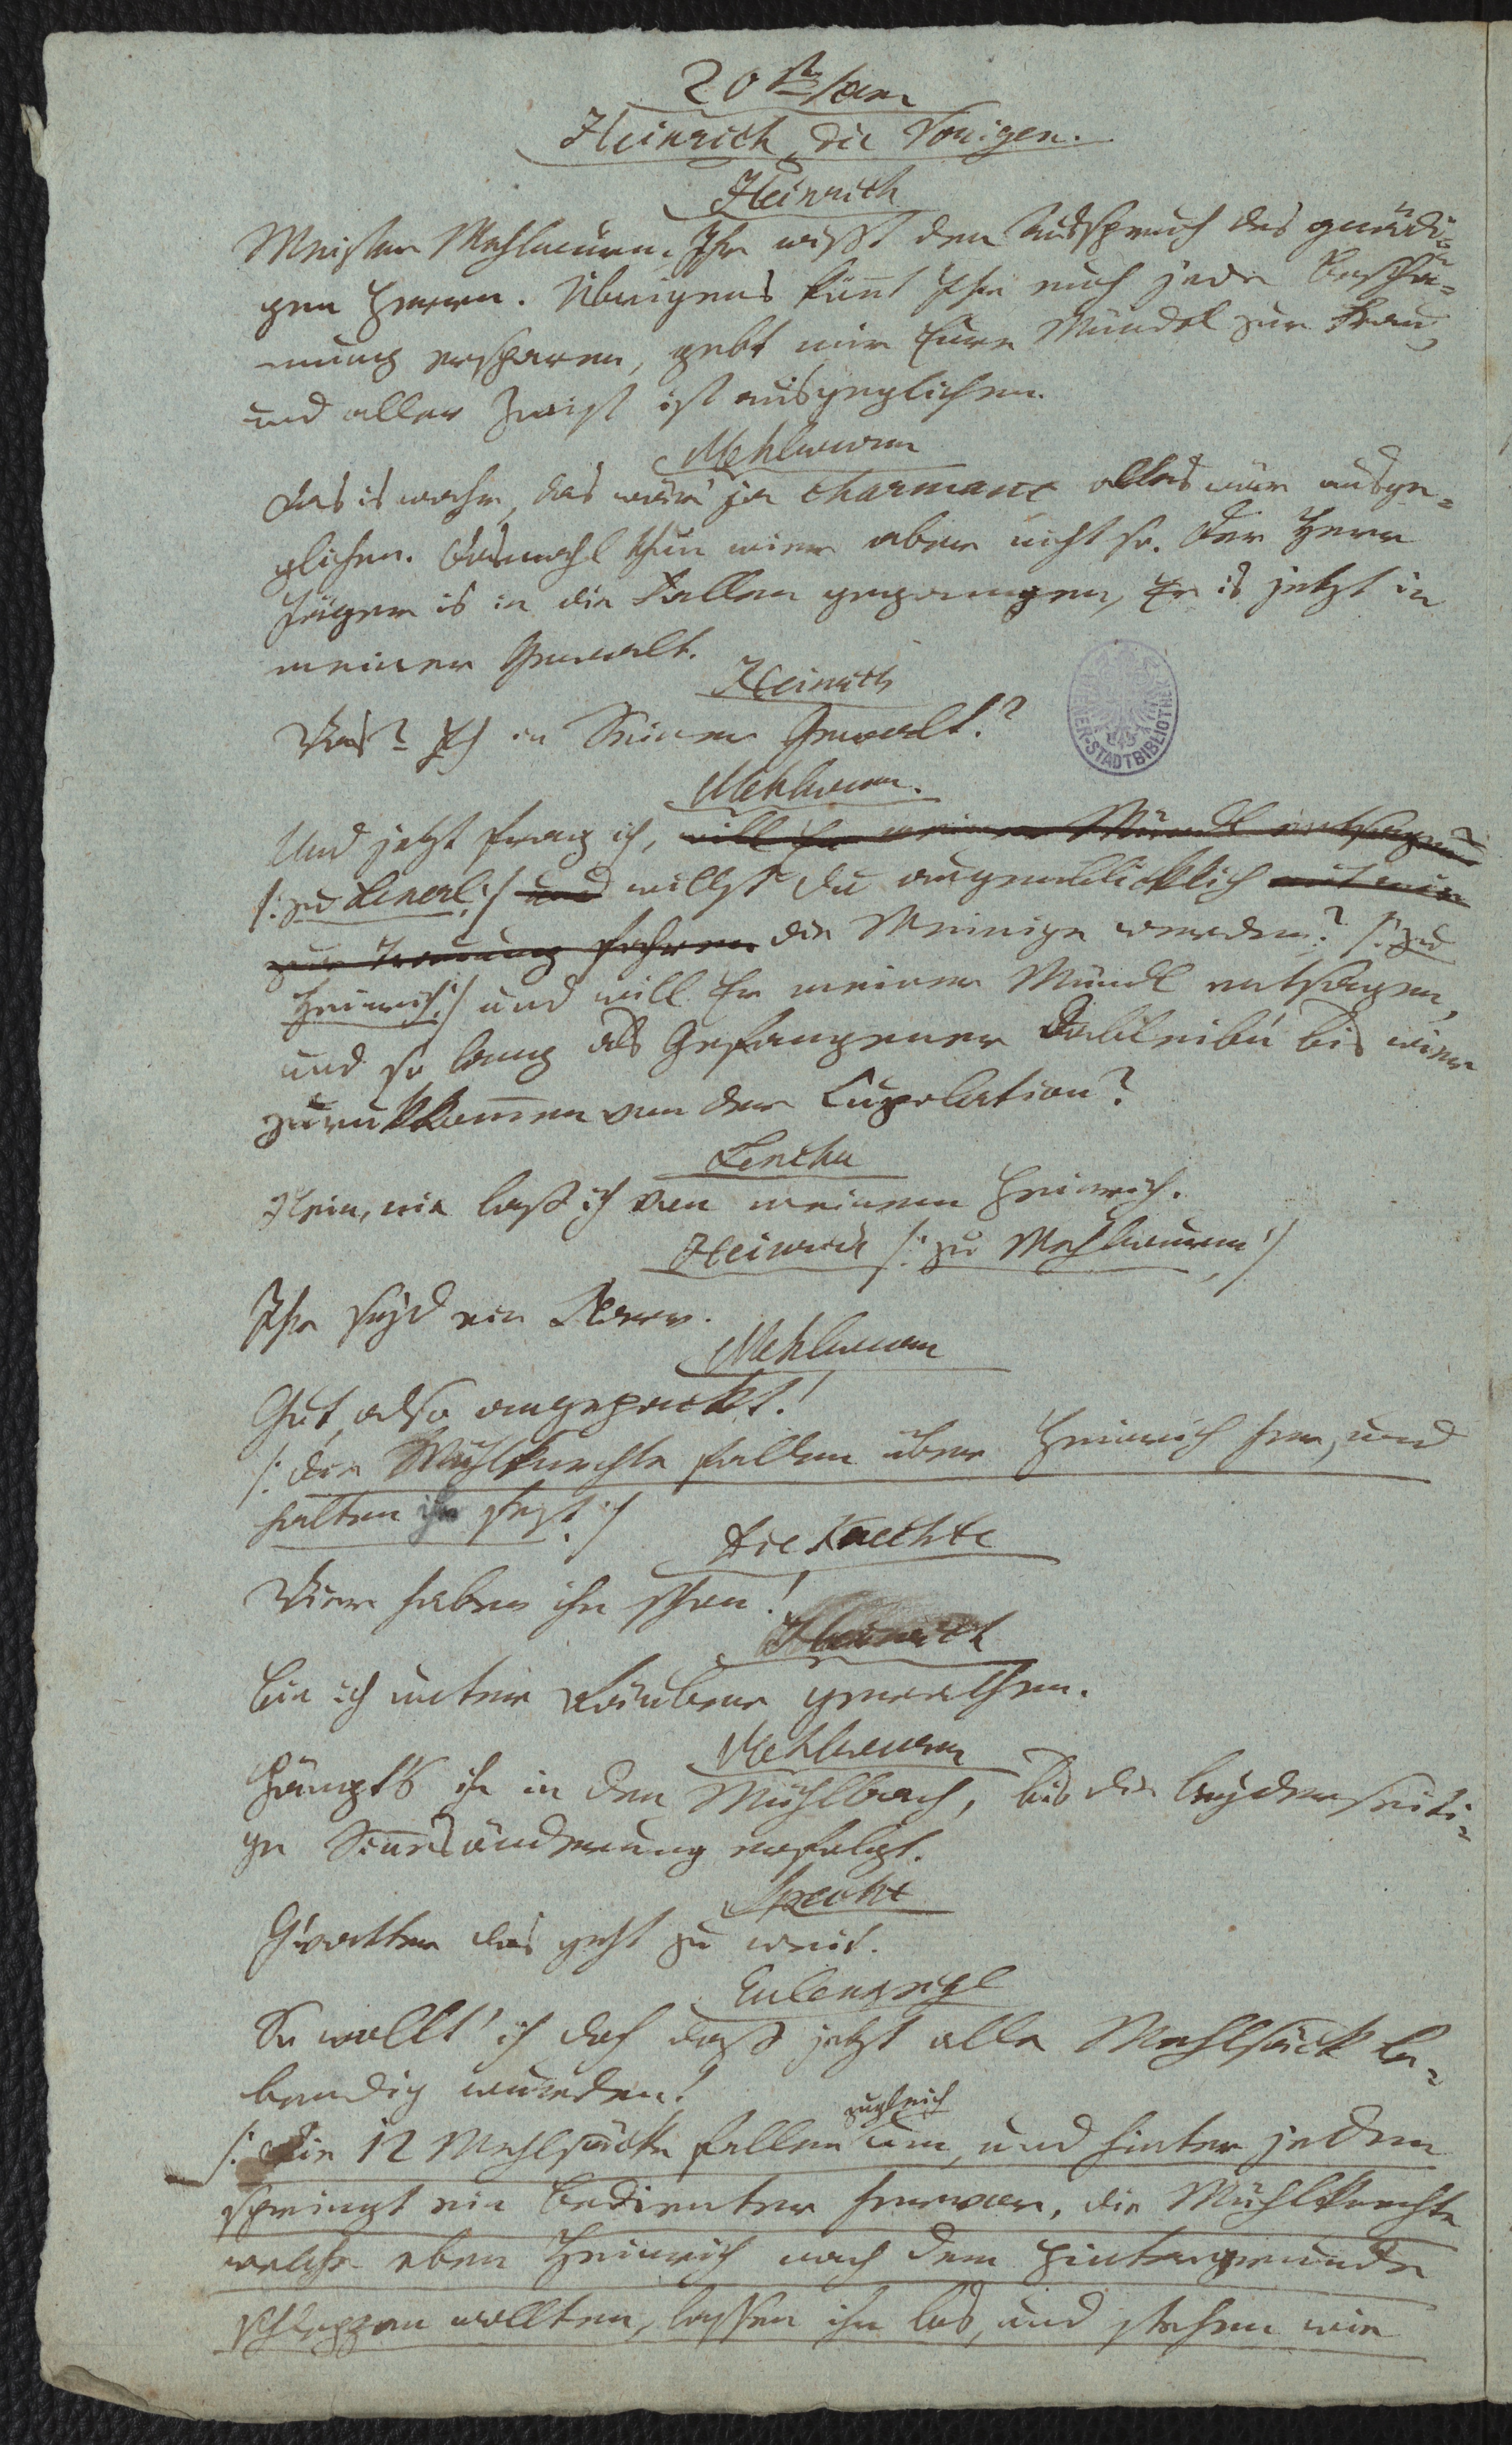 20ste Scene
Heinrich, die Vorigen.
Heinrich
Meister Mehlwurm. Ihr wißt den Ausspruch des gnädi=
gen Herrn. Übrigens könnt Ihr euch jede Beschä=
mung ersparen, gebt mir Eure Mündel zur Frau,
und aller Zwist ist ausgeglichen.
Mehlwurm
Das is wahr, das wär' ja charmant alles wär ausge=
glichen. Dasmahl thun wier aber nicht so. Der Herr
Jäger is in die Fallen gegangen, Er is jetzt in
meiner Gewalt.
Heinrich
Was? Ich in Seiner Gewalt?
WIENER-STADTBIBLIOTHEK
Mehlwurm.
Und jetzt frag ich, will Er meiner Mündl entsagen?
/: zu Lenerl :/ und willst du augenblicklich mit mir
zur Trauung fahren die Meinige werden? /: zu
Heinrich :/ und will Er meiner Mündl entsagen,
und so lang als Gefangener dableib'n bis wier
zurukkommen von der Cupolation?
Lenchen
Nein, nie laß ich von meinem Heinrich.
Heinrich /: zu Mehlwurm :/
Ihr seyd ein Narr.
Mehlwurm
Gut, also angepackt!
/: die Mühlknechte fallen über Heinrich her, und
halten ihn fest :/
Die Knechte
Wier haben ihn schon!
Heinrich
Bin ich unter Räuber gerathen.
Mehlwurm
Hängt's ihn in den Mühlbach, bis die beyderseiti=
ge Sinnesänderung erfolgt.
Specht
G'vatter das geht zu weit.
Eulenspigl
So wollt' ich doch daß jetzt alle Mehlsäck le=
bendig wurden!
/: Die 12 Mehlsäcke fallen zugleich um, und hinter jedem
springt ein Bedienter hervor, die Mühlknechte
welche eben Heinrich nach dem Hintergrunde
schleppen wollten, lassen ihn los, und stehen wie